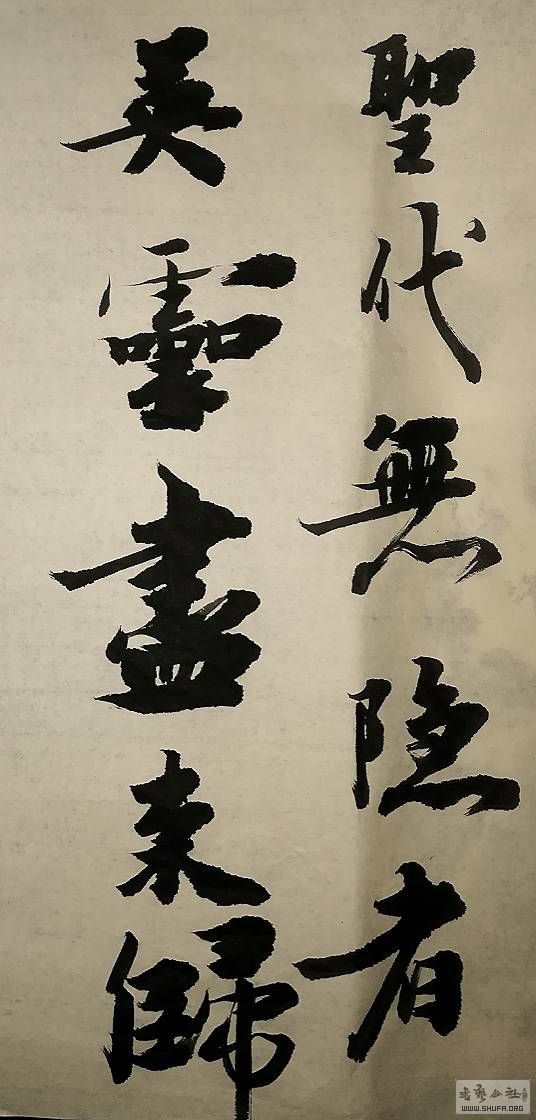 聖代無隐者
英靈盡来歸
書藝公社
WWW.SHUFA.ORG